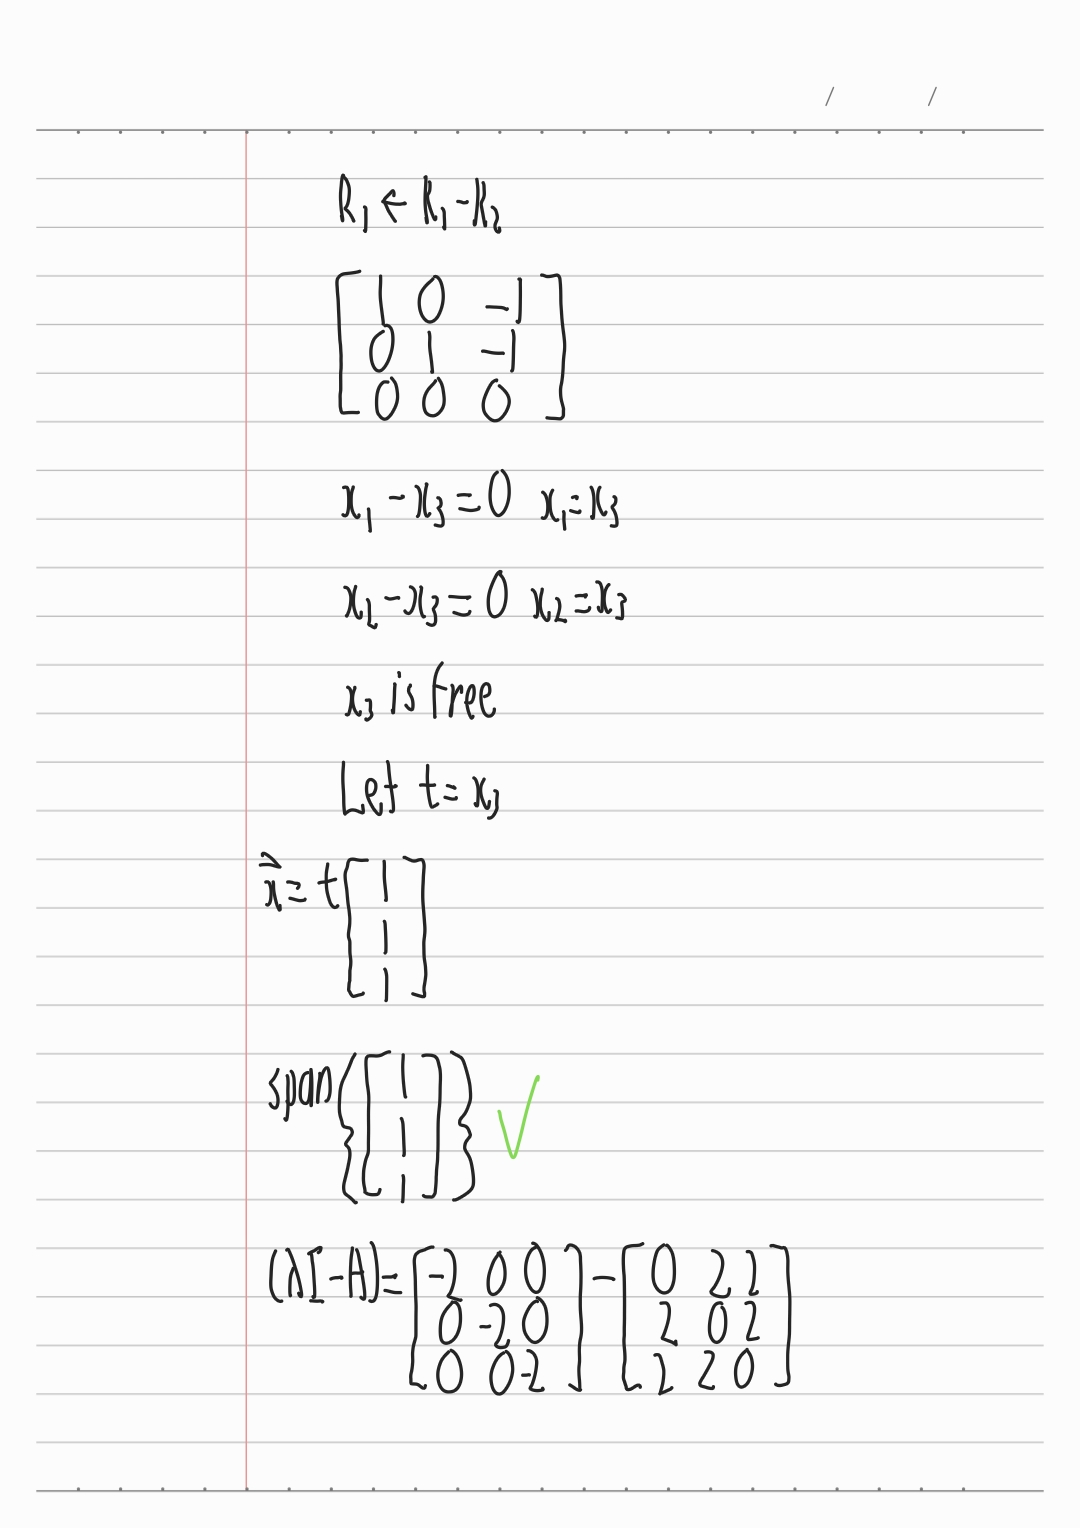 / /
R₁ ← R₁ - R₂
[ 1 0 -1
0 1 -1
0 0 0 ]
x₁ - x₃ = 0 x₁ = x₃
x₂ - x₃ = 0 x₂ = x₃
x₃ is free
Let t = x₃
x⃗ = t [ 1
1
1 ]
span { [ 1
1
1 ] } ✓
(λI - A) = [ -2 0 0 ] - [ 0 2 2 ]
[ 0 -2 0 ] [ 2 0 2 ]
[ 0 0 -2 ] [ 2 2 0 ]